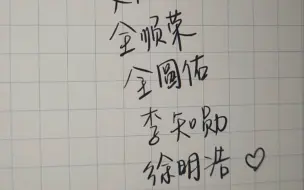 全顺荣
全圆佑
李知勋
徐明浩♡